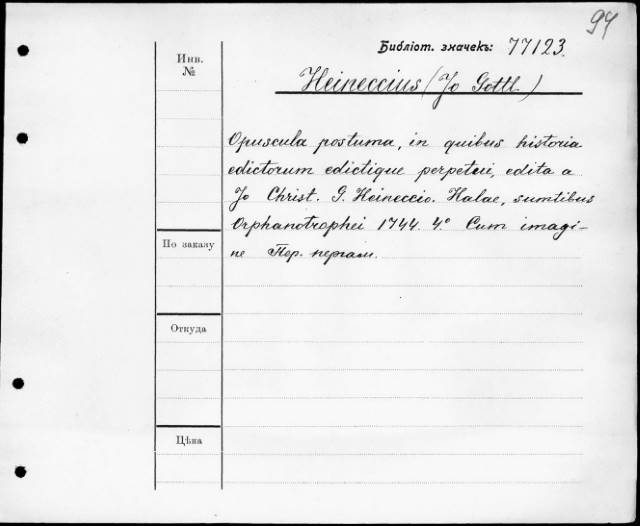 94
Библіот. значекъ: 77123.
Инв.
№
Heineccius (Jo Gottl.)
Opuscula postuma, in quibus historia
edictorum edictique perpetui, edita a
Jo Christ. G. Heineccio. Halae, sumtibus
Orphanotrophei 1744. 4.° Cum imagi-
По заказу
ne Пер. пергам.
Откуда
Цѣна